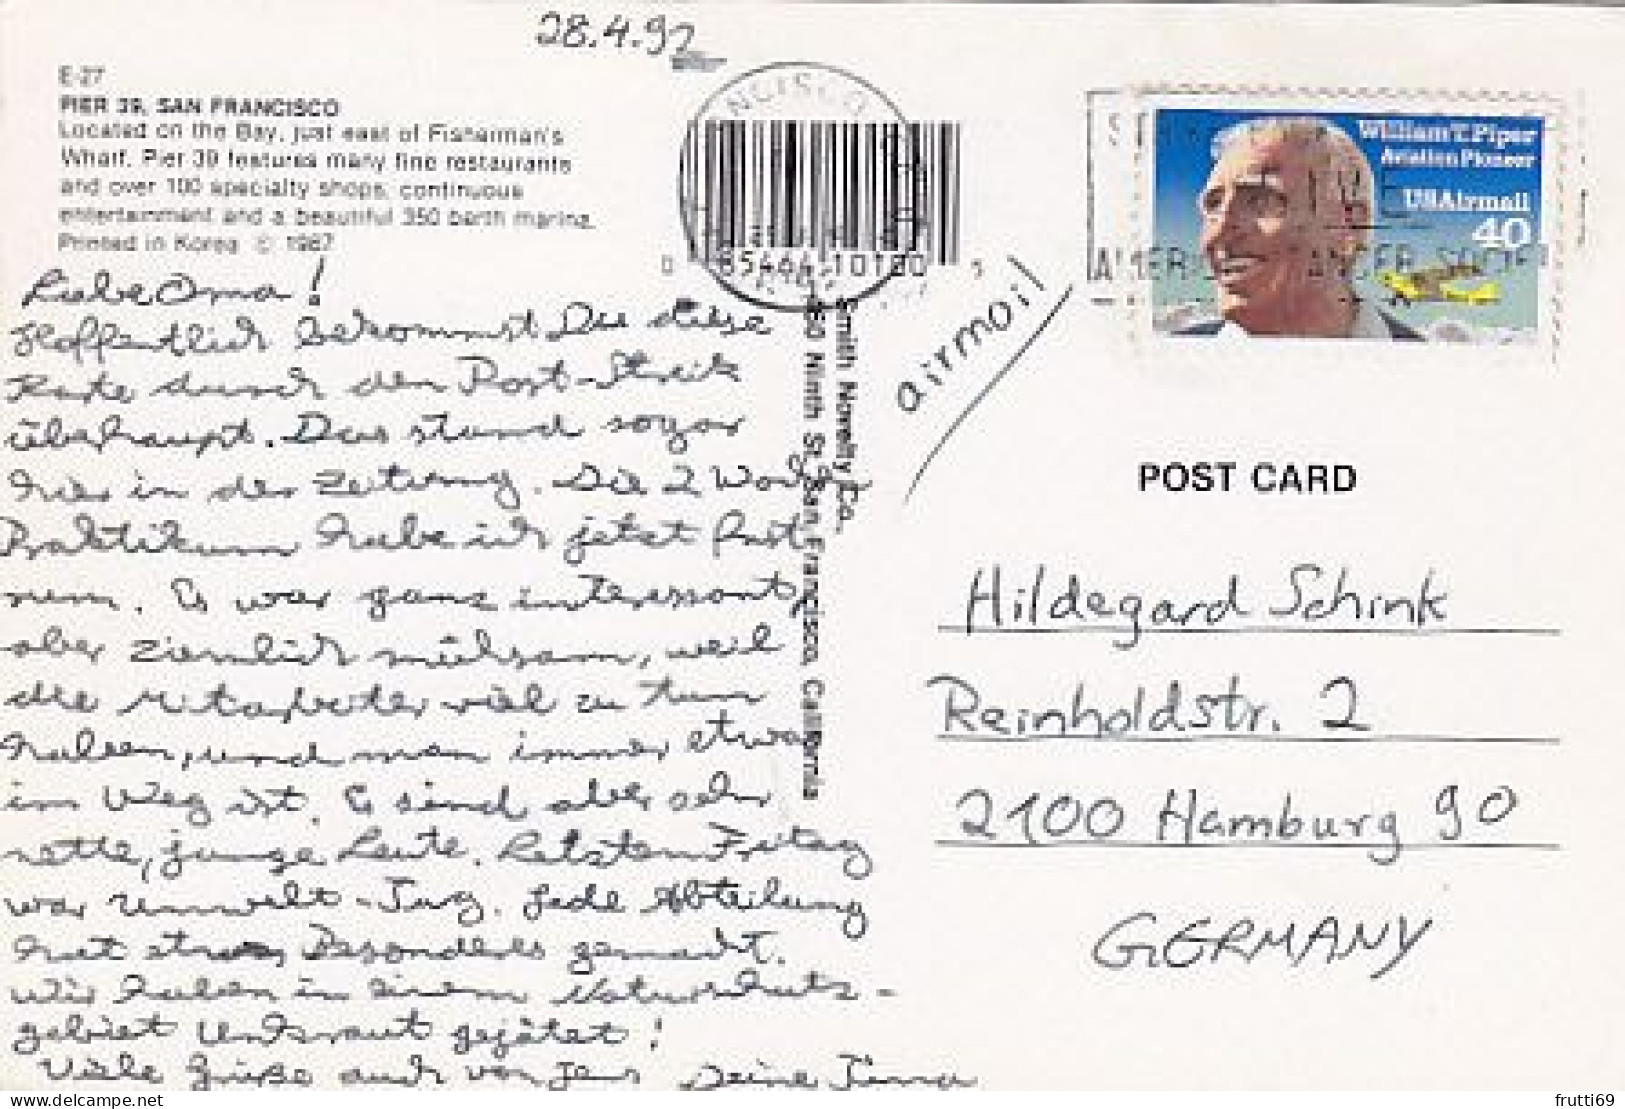 28.4.92
E-27
PIER 39, SAN FRANCISCO
Located on the Bay, just east of Fisherman's
Wharf. Pier 39 features many fine restaurants
and over 100 specialty shops, continuous
entertainment and a beautiful 350 berth marina.
Printed in Korea © 1987
Liebe Oma!
Hoffentlich bekommst Du diese
Karte durch den Post-Streik
überhaupt. Das stand sogar
hier in der Zeitung. Die 2 Wochen
Praktikum habe ich jetzt fast
rum. Es war ganz interessant,
aber ziemlich mühsam, weil
die Mitarbeiter viel zu tun
haben, und man immer etwas
im Weg ist. Es sind aber sehr
nette, junge Leute. Letzten Freitag
war Umwelt-Tag. Jede Abteilung
hat etwas Besonderes gemacht.
Wir haben in einem Naturschutz-
gebiet Unkraut gejätet!
Viele Grüße auch von Jens Deine
NCISCO
0 85464 10180 5
Smith Novelty Co.
460 Ninth St. San Francisco, California
airmail
William T. Piper
Aviation Pioneer
USAirmail
40
AMERIC ANCER SOCIE
POST CARD
Hildegard Schink
Reinholdstr. 2
2100 Hamburg 90
GERMANY
frutti69